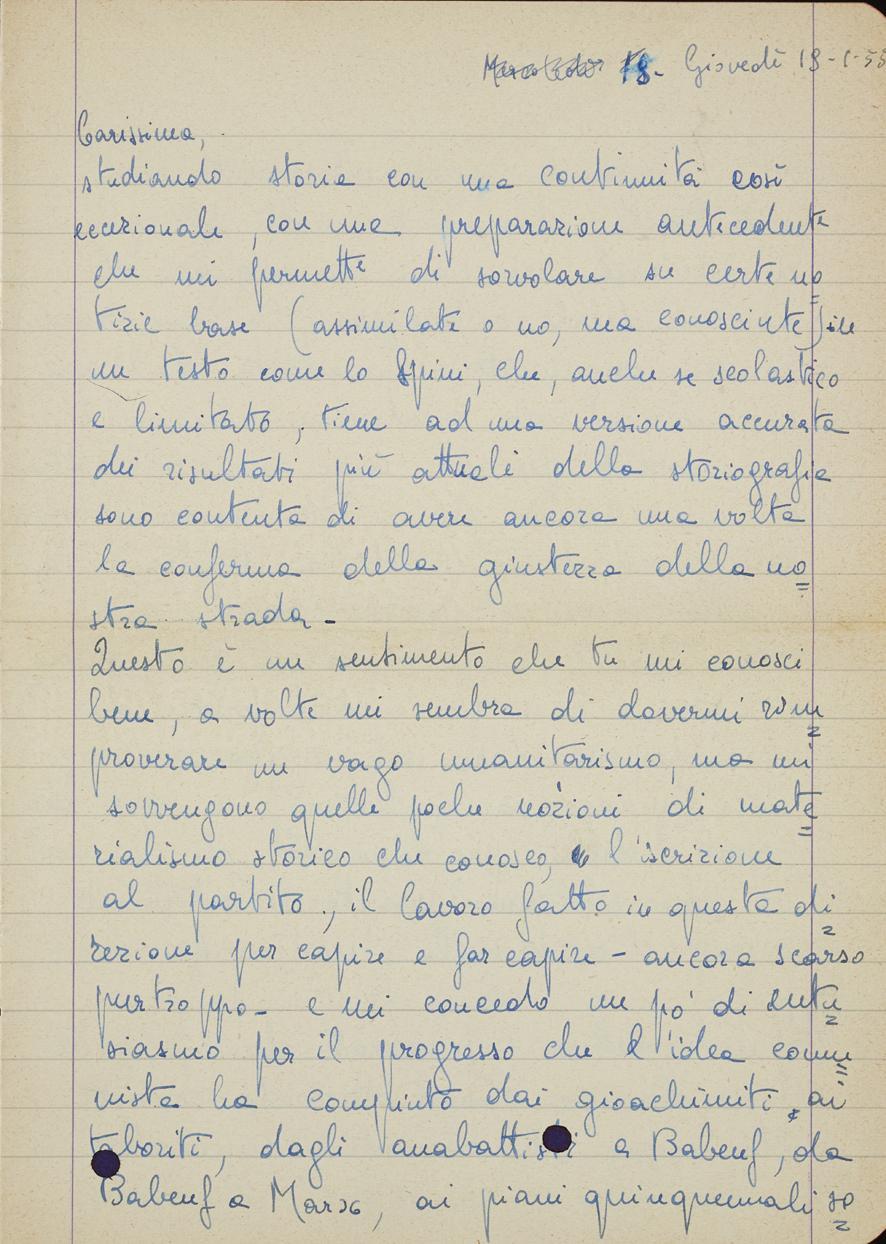 Giovedì 19-1-53
Carissima,
studiando storia con una continuità così
eccezionale, con una preparazione antecedente
che mi permette di sorvolare su certe no
tizie base (assimilate o no, ma conosciute) in
un testo come lo Spini, che, anche se scolastico
e limitato, tiene ad una versione accurata
dei risultati più attuali della storiografia
sono contenta di avere ancora una volta
la conferma della giustezza della no
stra strada -
Questo è un sentimento che tu mi conosci
bene, a volte mi sembra di dovermi rim
proverare un vago umanitarismo, ma mi
sovvengono quelle poche nozioni di mate
rialismo storico che conosco, l'iscrizione
al partito, il lavoro fatto in questa di
rezione per capire e far capire - ancora scarso
purtroppo - e mi concedo un pò di entu
siasmo per il progresso che l'idea comu
nista ha compiuto dai gioachimiti, ai
taboriti, dagli anabattisti a Babeuf, da
Babeuf a Marx, ai piani quinquennali so